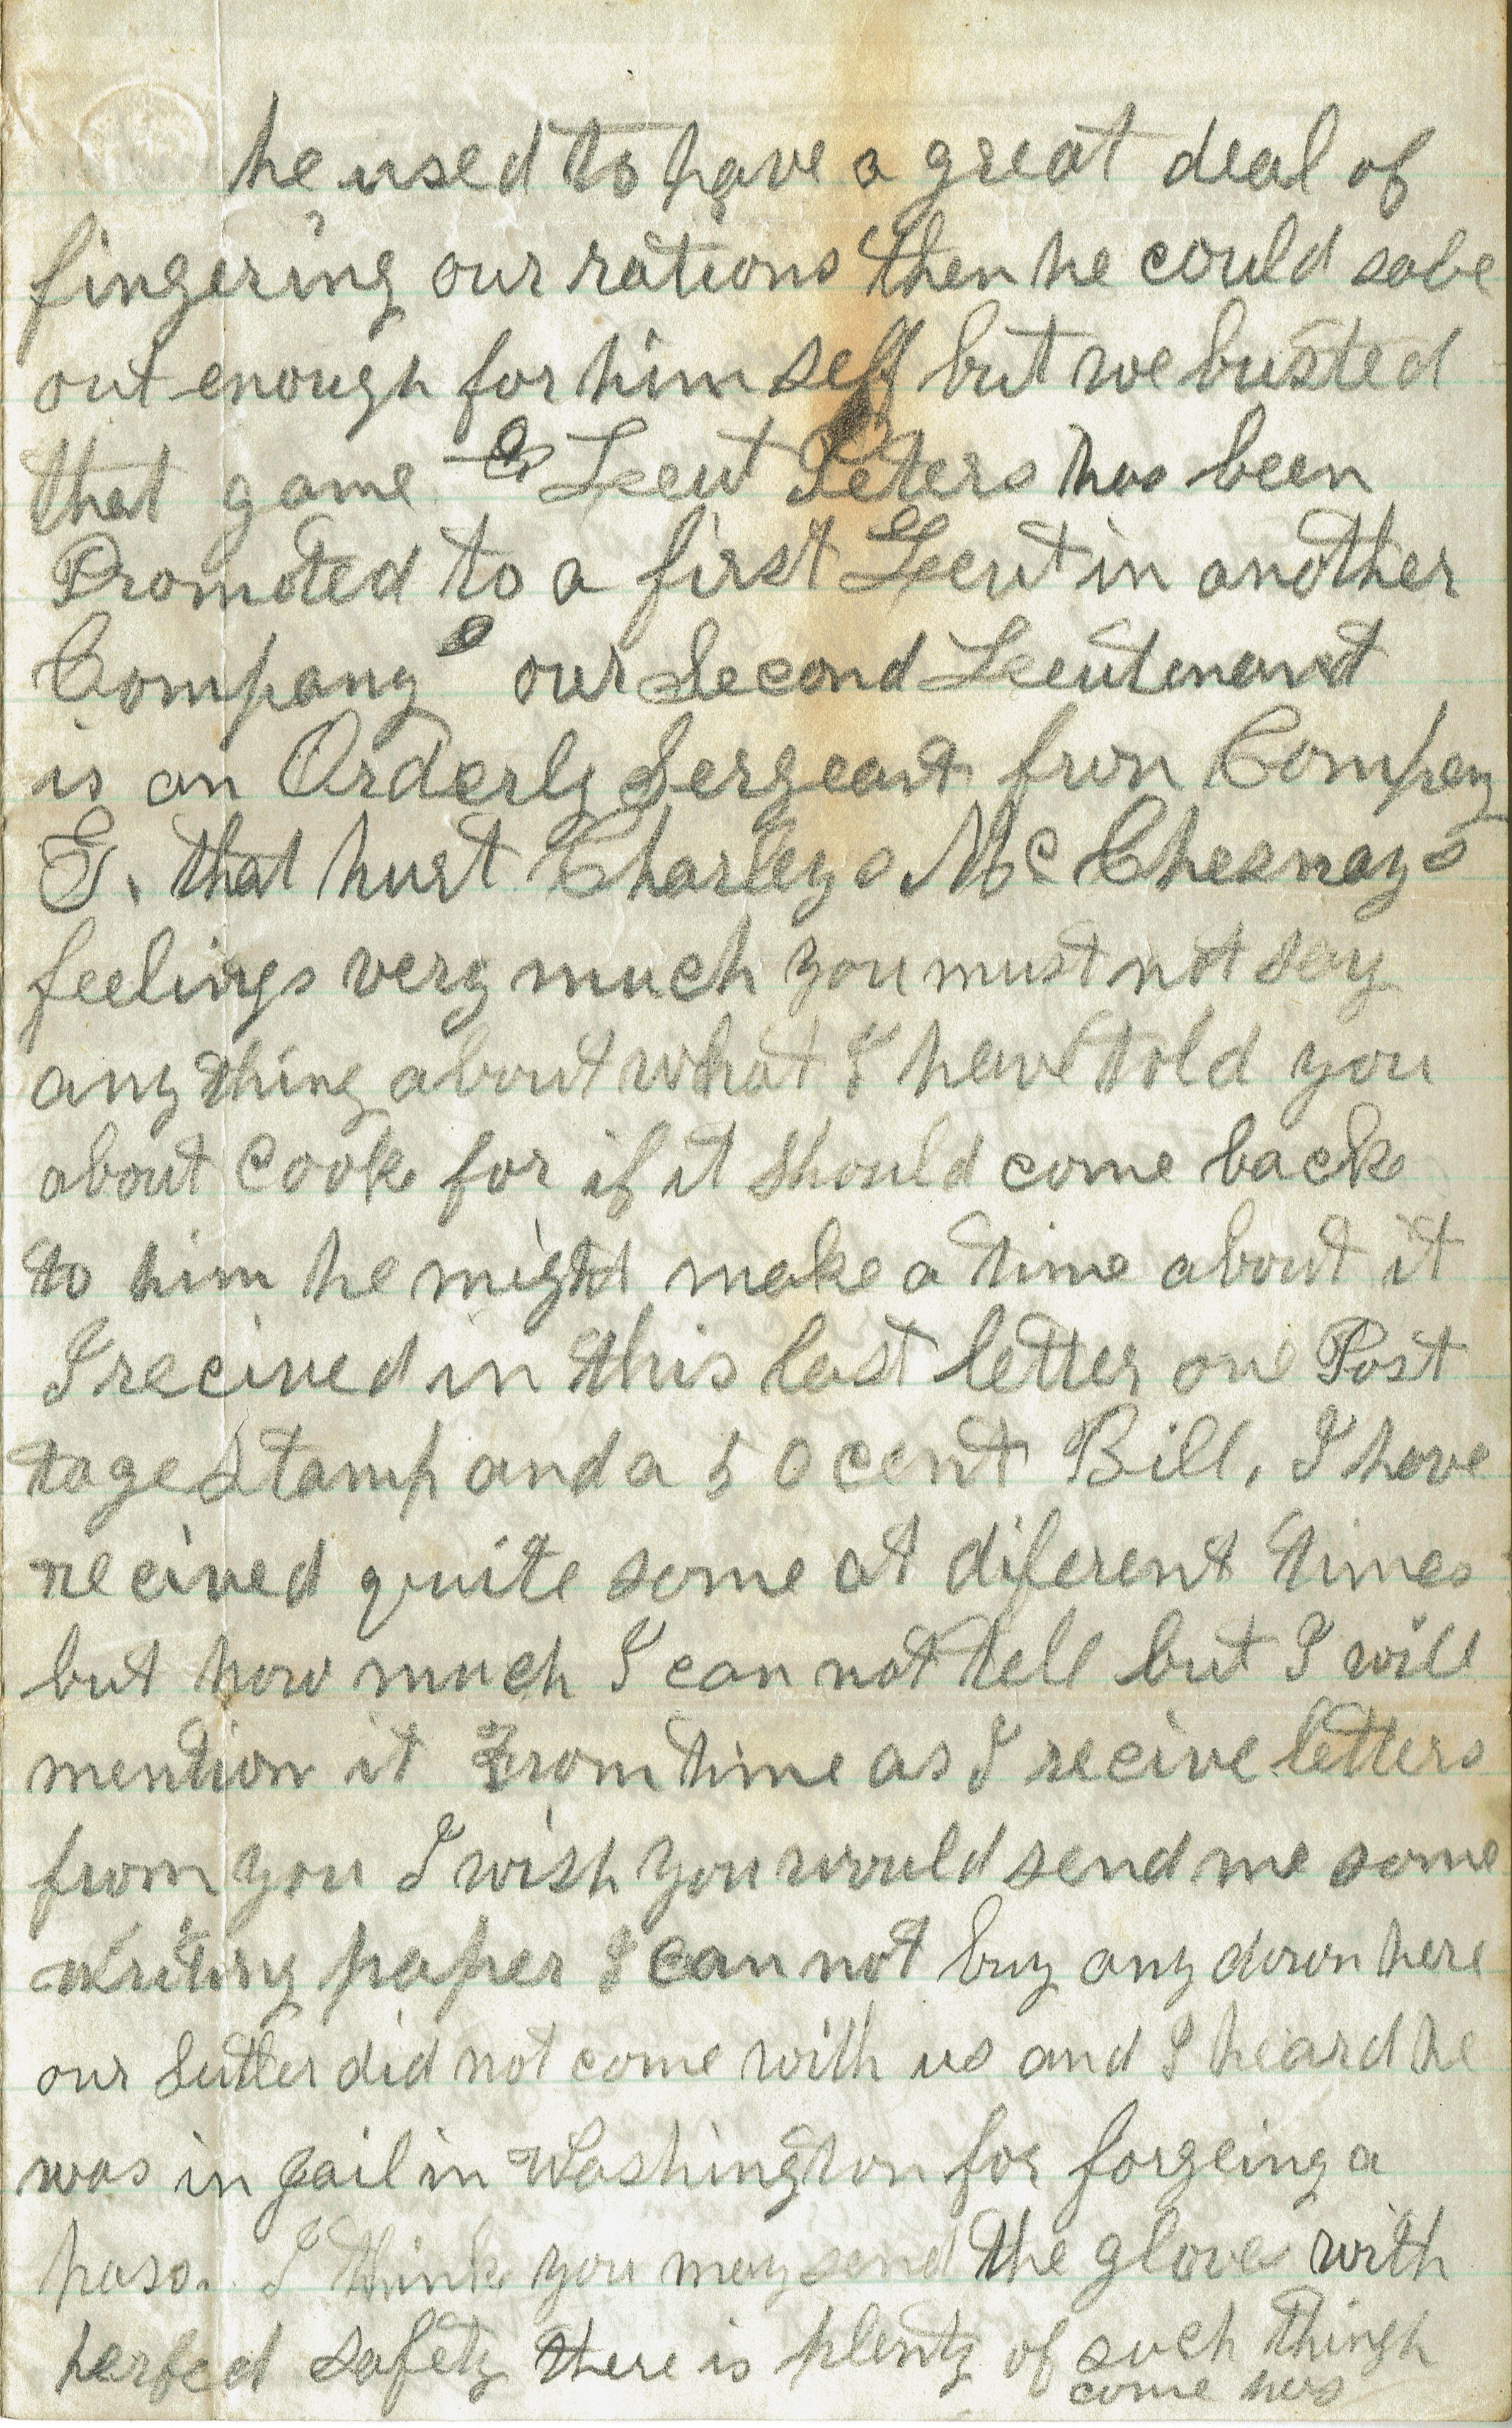 he used to have a great deal of
fingering our rations then he could sabe
out enough for him self but we busted
that game Leeut Peters has been
Promoted to a first Leeut in another
Company our Second Leeutenant
is an Orderly Sergeant from Company
G. that hurt Charleys McChesnays
feelings very much you must not say
any thing about what I have told you
about Cook for if it should come back
to him he might make a time about it
I recived in this last letter one Post
tage Stamp and a 50 cent Bill, I have
recived quite some at diferent times
but how much I can not tell but I will
mention it From time as I recive letters
from you I wish you would send me some
writing paper I can not buy any down here
our Sutler did not come with us and I heard he
was in jail in Washington for forgeing a
pass. I think you may send the glove with
perfed safety there is plenty of such thingh
come hers